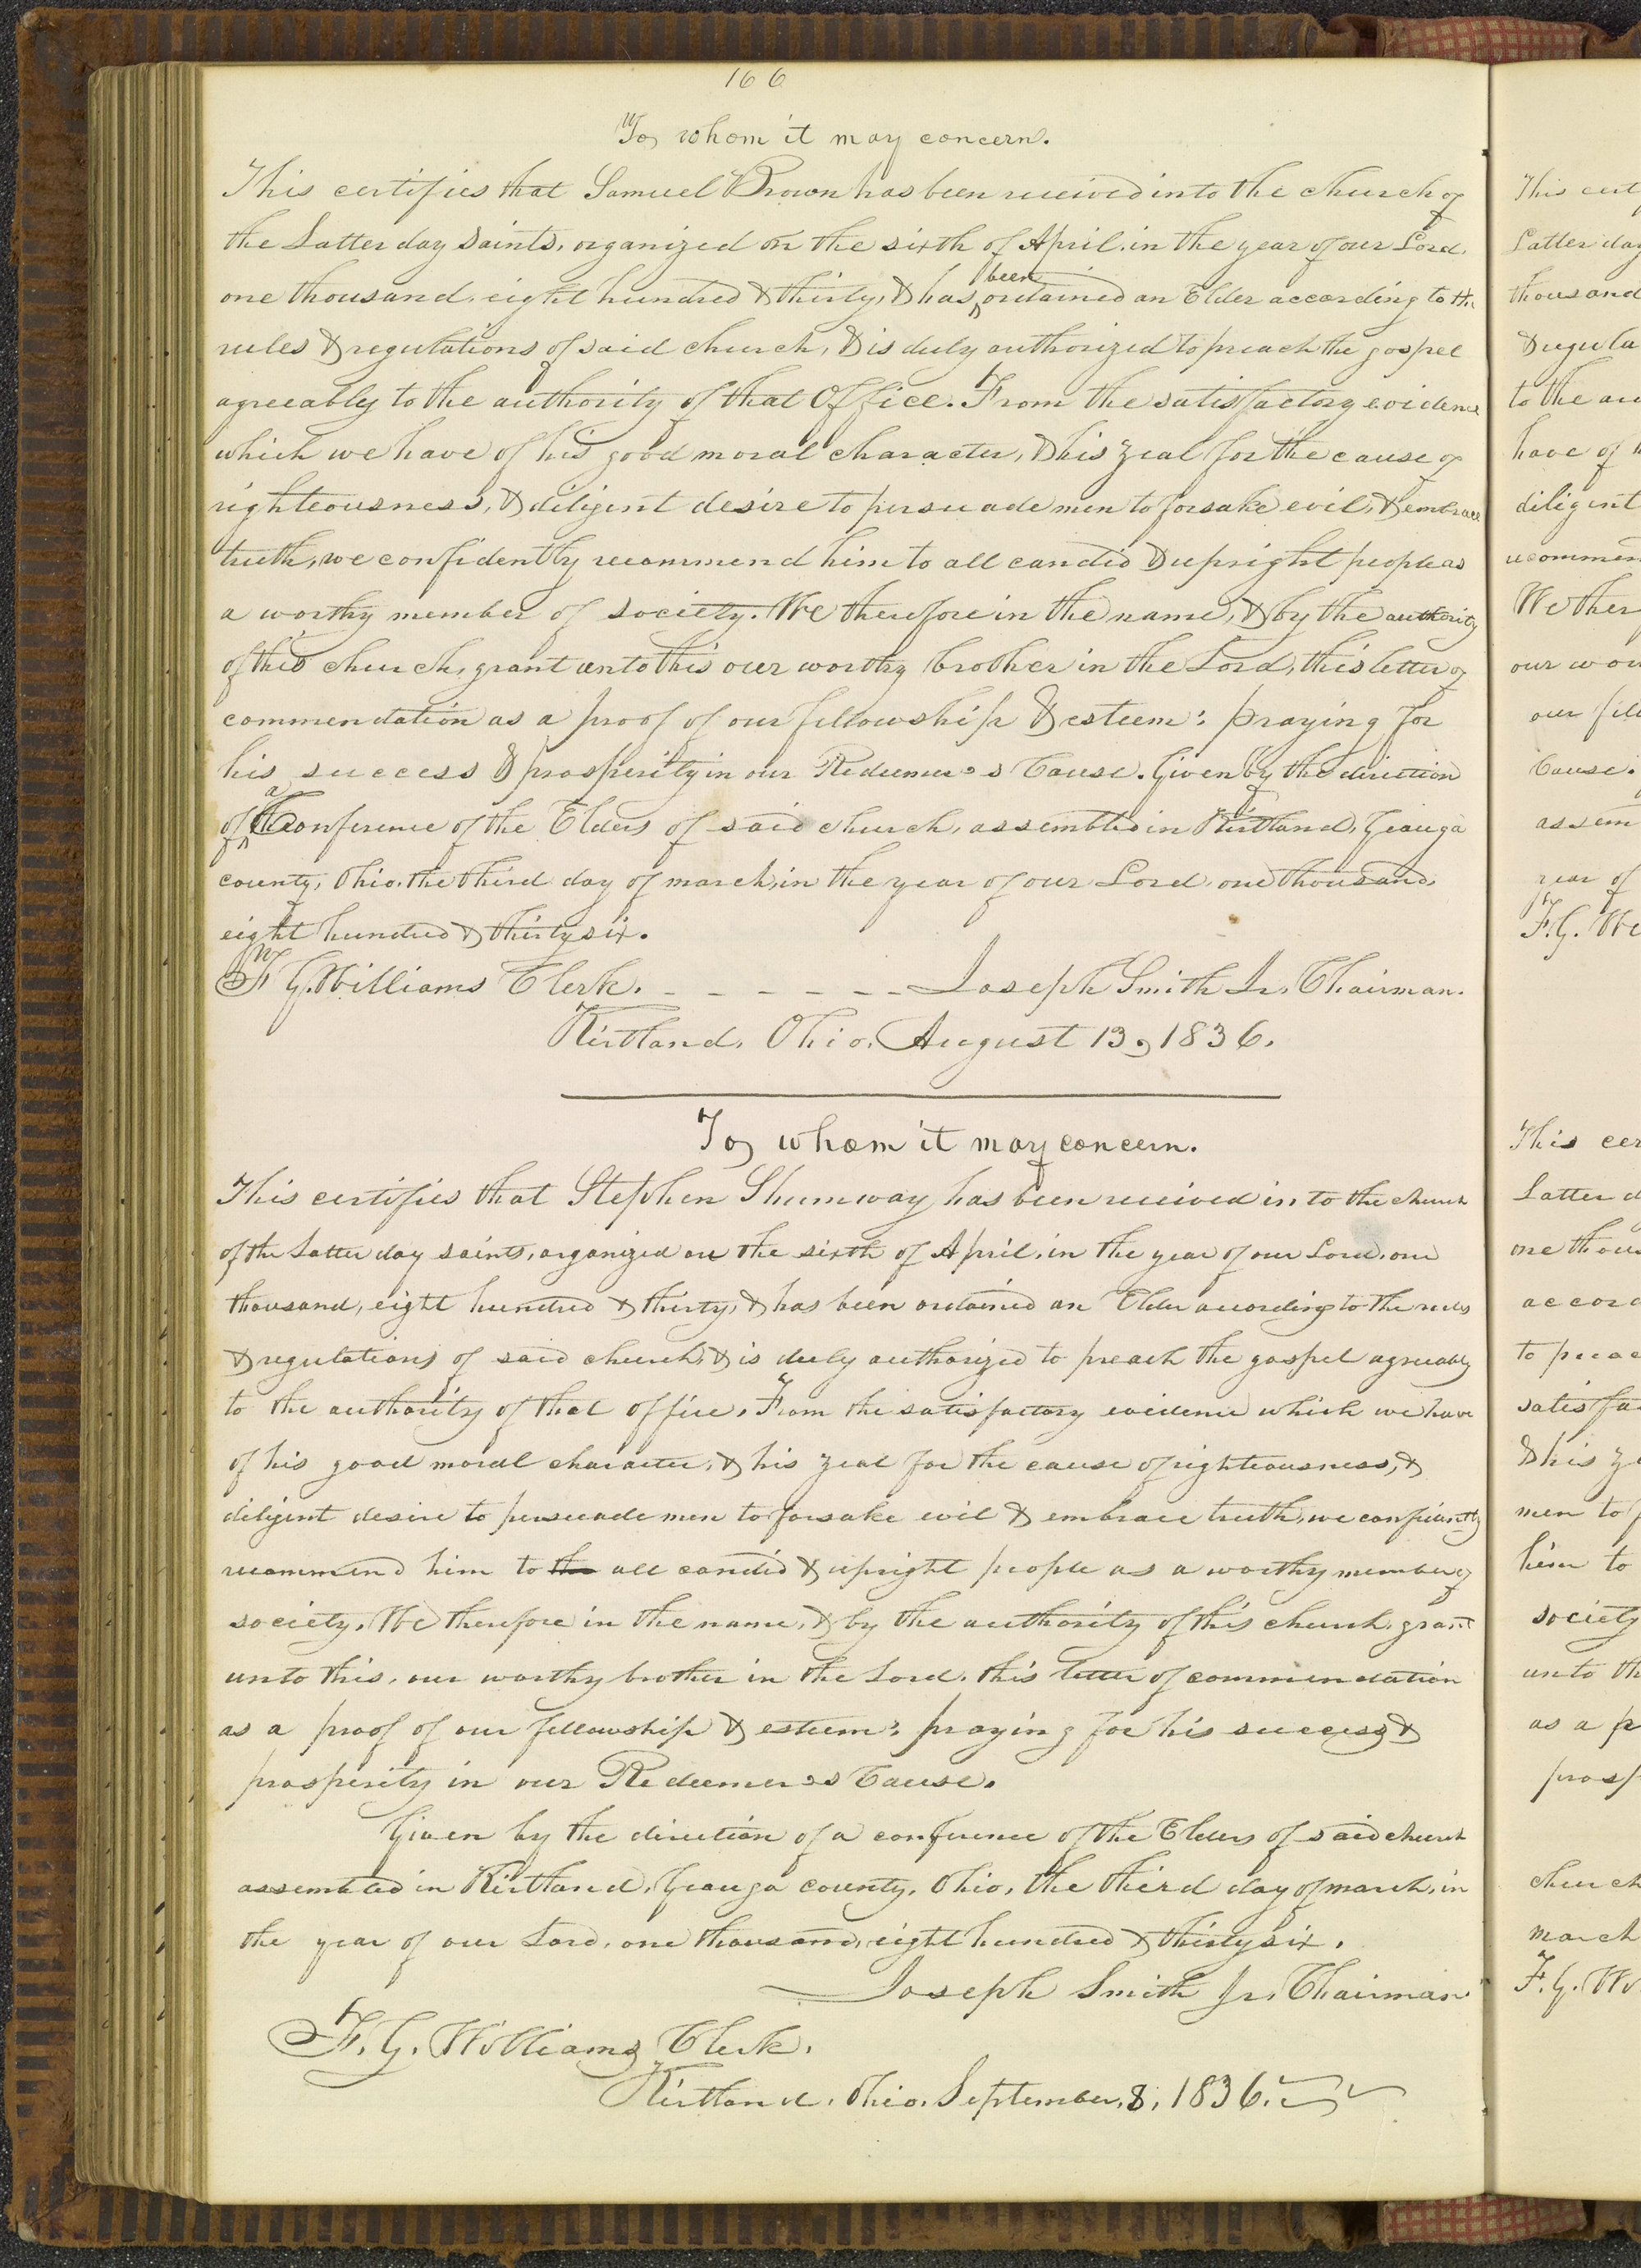 166
To whom it may concern.
This certifies that Samuel Brown has been received into the church of
the Latter day Saints, organized on the sixth of April, in the year of our Lord,
one thousand, eight hundred & thirty, & has been ordained an Elder according to the
rules & regulations of said church, & is duly authorized to preach the gospel
agreeably to the authority of that Office. From the satisfactory evidence
which we have of his good moral character, & his zeal for the cause of
righteousness, & diligent desire to persuade men to forsake evil, & embrace
truth, we confidently recommend him to all candid & upright people as
a worthy member of society. We therefore in the name, & by the authority
of this church, grant unto this our worthy brother in the Lord, this letter of
commendation as a proof of our fellowship & esteem: praying for
his success & prosperity in our Redeemer's Cause. Given by the direction
of a Conference of the Elders of said church, assembled in Kirtland, Geauga
county, Ohio, the third day of march, in the year of our Lord, one thousand,
eight hundred & thirty six.
F G. Williams Clerk. - - - - - - Joseph Smith Jr. Chairman.
Kirtland, Ohio, August 13, 1836.
To whom it may concern.
This certifies that Stephen Shumway has been received in to the church
of the Latter day saints, organized on the sixth of April, in the year of our Lord, one
thousand, eight hundred & thirty, & has been ordained an Elder according to the rules
& regulations of said church, & is duly authorized to preach the gospel agreeably
to the authority of that office. From the satisfactory evidence which we have
of his good moral character, & his zeal for the cause of righteousness, &
diligent desire to persuade men to forsake evil & embrace truth, we confidently
recommend him to the all candid & upright people as a worthy member of
society. We therefore in the name, & by the authority of this church, grant
unto this, our worthy brother in the Lord, this letter of commendation
as a proof of our fellowship & esteem: praying for his success &
prosperity in our Redeemer's Cause.
Given by the direction of a conference of the Elders of said church
assembled in Kirtland, Geauga county, Ohio, the third day of march, in
the year of our Lord, one thousand, eight hundred & thirty six.
Joseph Smith Jr. Chairman
F. G. Williams Clerk.
Kirtland, Ohio, September, 8, 1836.
This cert
Latter day
thousand
& regula
to the au
have of
diligent
recommen
We ther
our wor
our fell
Cause.
assem
year of
F. G. Wi
This cer
Latter d
one thou
accord
to preac
satisfa
& his ze
men to
him to
society
unto th
as a p
prosp
church
march
F. G. Wi